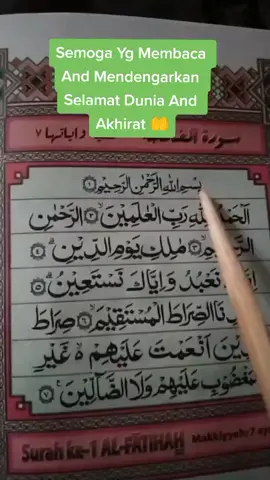 Semoga Yg Membaca
And Mendengarkan
Selamat Dunia And
Akhirat 🤲
سورة واياتها ٧
بِسْمِ اللهِ الرَّحْمٰنِ الرَّحِيْمِ ۝١
لِلّٰهِ رَبِّ الْعٰلَمِيْنَ ۝٢ الرَّحْمٰنِ
مٰلِكِ يَوْمِ الدِّيْنِ ۝٤
نَعْبُدُ وَاِيَّاكَ نَسْتَعِيْنُ ۝٥
الصِّرَاطَ الْمُسْتَقِيْمَ ۝٦ صِرَاطَ
اَنْعَمْتَ عَلَيْهِمْ ەۙ غَيْرِ
عَلَيْهِمْ وَلَا الضَّاۤلِّيْنَ ۝٧
Surah ke-1 AL-FATIHAH Makkiyyah: 7